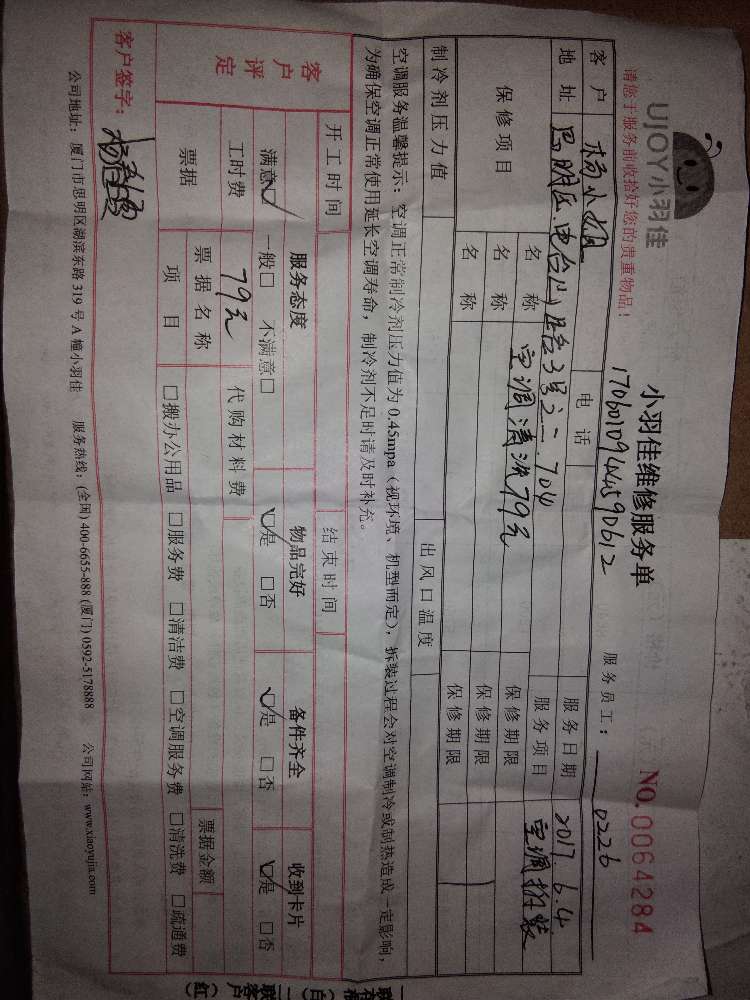 UJOY小羽佳
请您于服务前收拾好您的贵重物品！
小羽佳维修服务单
NO. 0064284
1706010944590612
服务员工： 0226
客户 杨小姐 电话 服务日期 2017.6.4
地址 服务项目 空调拆装
保修项目 名称 空调清洗79元 保修期限
名称 保修期限
名称 保修期限
制冷剂压力值 出风口温度
空调服务温馨提示：空调正常制冷剂压力值为 0.45mpa（视环境、机型而定），拆装过程会对空调制冷或制热造成一定影响，
为确保空调正常使用延长空调寿命，制冷剂不足时请及时补充。
开工时间 结束时间
客户评定 服务态度 物品完好 备件齐全 收到卡片
满意☑ 一般□ 不满意□ ☑是 □否 ☑是 □否 ☑是 □否
工时费 79元 代购材料费
票据 票据名称 票据金额
项目 □搬办公用品 □服务费 □清洁费 □空调服务费 □清洗费 □疏通费
客户签字：
公司地址：厦门市思明区湖滨东路 319 号 A 幢小羽佳 服务热线：(全国) 400-6655-888 (厦门) 0592-5178888 公司网站：www.xiaoyujia.com